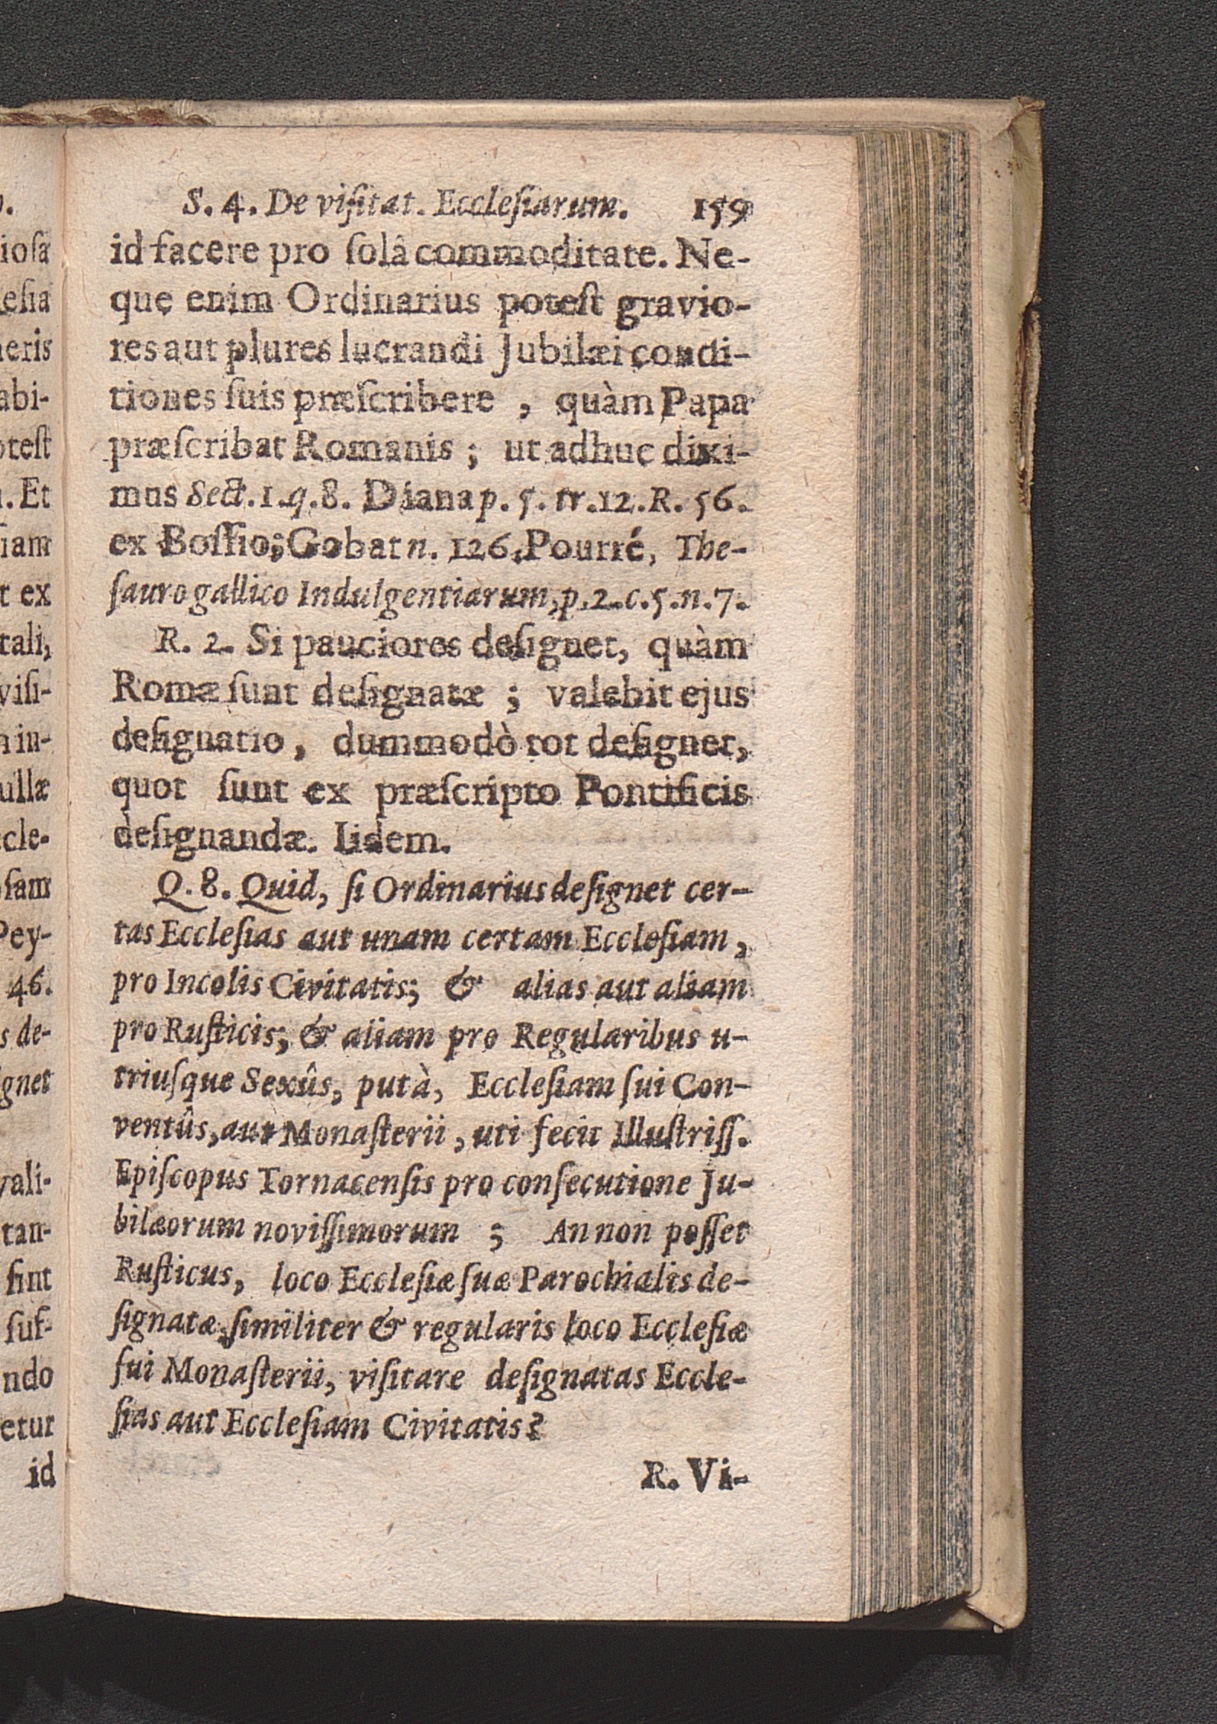 S. 4. De visitat. Ecclesiarum. 159
id facere pro solâ commoditate. Ne-
que enim Ordinarius potest gravio-
res aut plures lucrandi Jubilæi condi-
tiones suis præscribere, quàm Papa
præscribat Romanis; ut adhuc dixi-
mus Sect. 1. q. 8. Diana p. 5. tr. 12. R. 56.
ex Bossio; Gobat n. 126. Pourré, The-
sauro gallico Indulgentiarum, p. 2. c. 5. n. 7.
R. 2. Si pauciores designet, quàm
Romæ sunt designatæ; valebit ejus
designatio, dummodò tot designet,
quot sunt ex præscripto Pontificis
designandæ. Iidem.
Q. 8. Quid, si Ordinarius designet cer-
tas Ecclesias aut unam certam Ecclesiam,
pro Incolis Civitatis; & alias aut aliam
pro Rusticis; & aliam pro Regularibus u-
triusque Sexûs, putà, Ecclesiam sui Con-
ventûs, aut Monasterii, uti fecit Illustriss.
Episcopus Tornacensis pro consecutione Ju-
bilæorum novissimorum; An non posset
Rusticus, loco Ecclesiæ suæ Parochialis de-
signatæ, similiter & regularis loco Ecclesiæ
sui Monasterii, visitare designatas Eccle-
sias aut Ecclesiam Civitatis?
R. Vi-